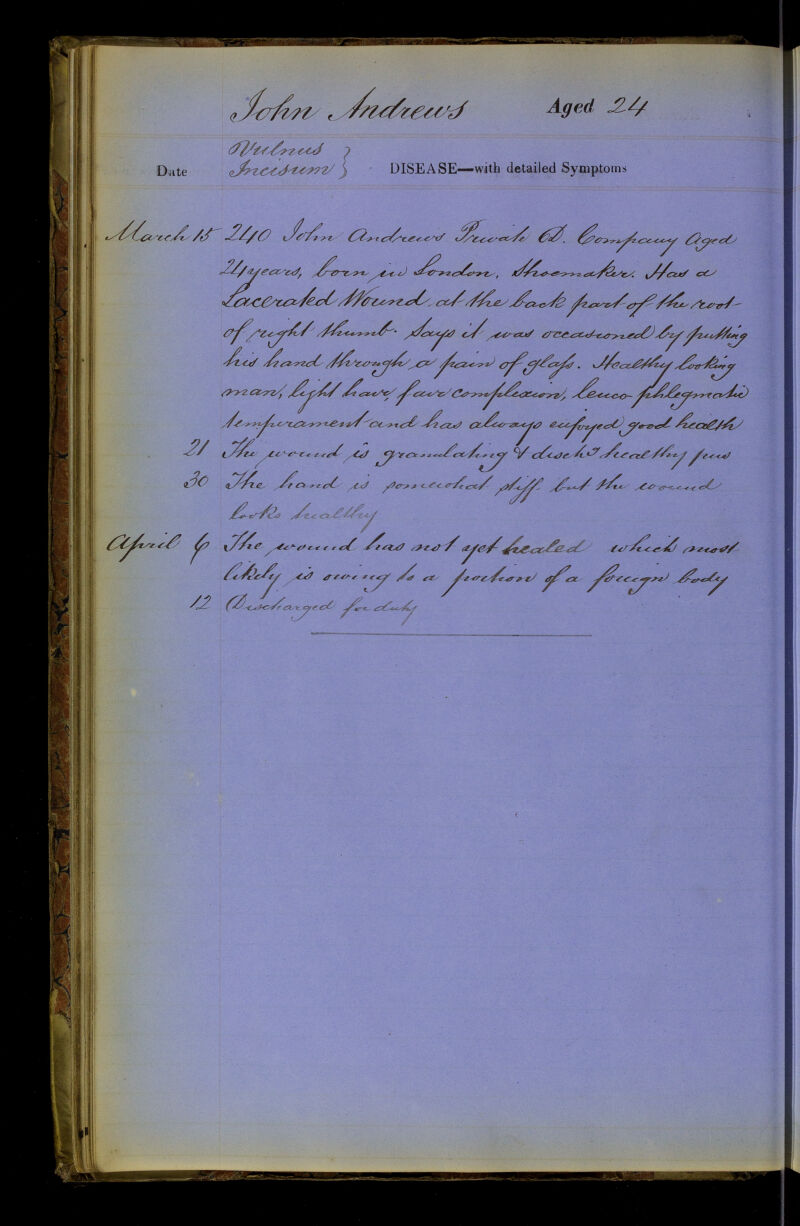 John Andrews Aged 24
Vulnus
Incisum }
Date DISEASE—with detailed Symptoms
March 15 240 John Andrews Private D. Company Aged
24 years, born in London, Shoemaker. Has a
Lacerated Wound at the back part of the root
of right thumb. Says it was occasioned by putting
his hand through a pain of glass. Healthy looking
man, light hair, fair complexion, leuco phlegmatic
temperament and has always enjoyed good health
21 The wound is granulating & dischg healthy pus
30 The hand is somewhat stiff but the wound
looks healthy
April 6 The wound has not yet healed which most
likely is owing to a portion of a foreign body
12 Discharged for duty